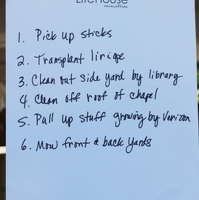 LifeHouse
1. Pick up sticks
2. Transplant liriope
3. Clean out side yard by library
4. Clean off roof of chapel
5. Pull up stuff growing by Verizon
6. Mow front & back yards